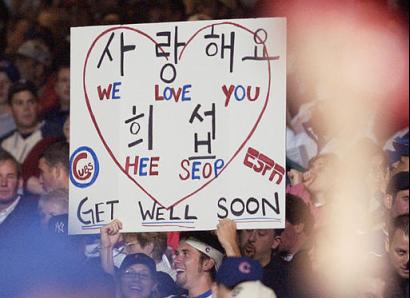 사랑해요
WE LOVE YOU
희섭
HEE SEOP
CUBS
ESPN
GET WELL SOON